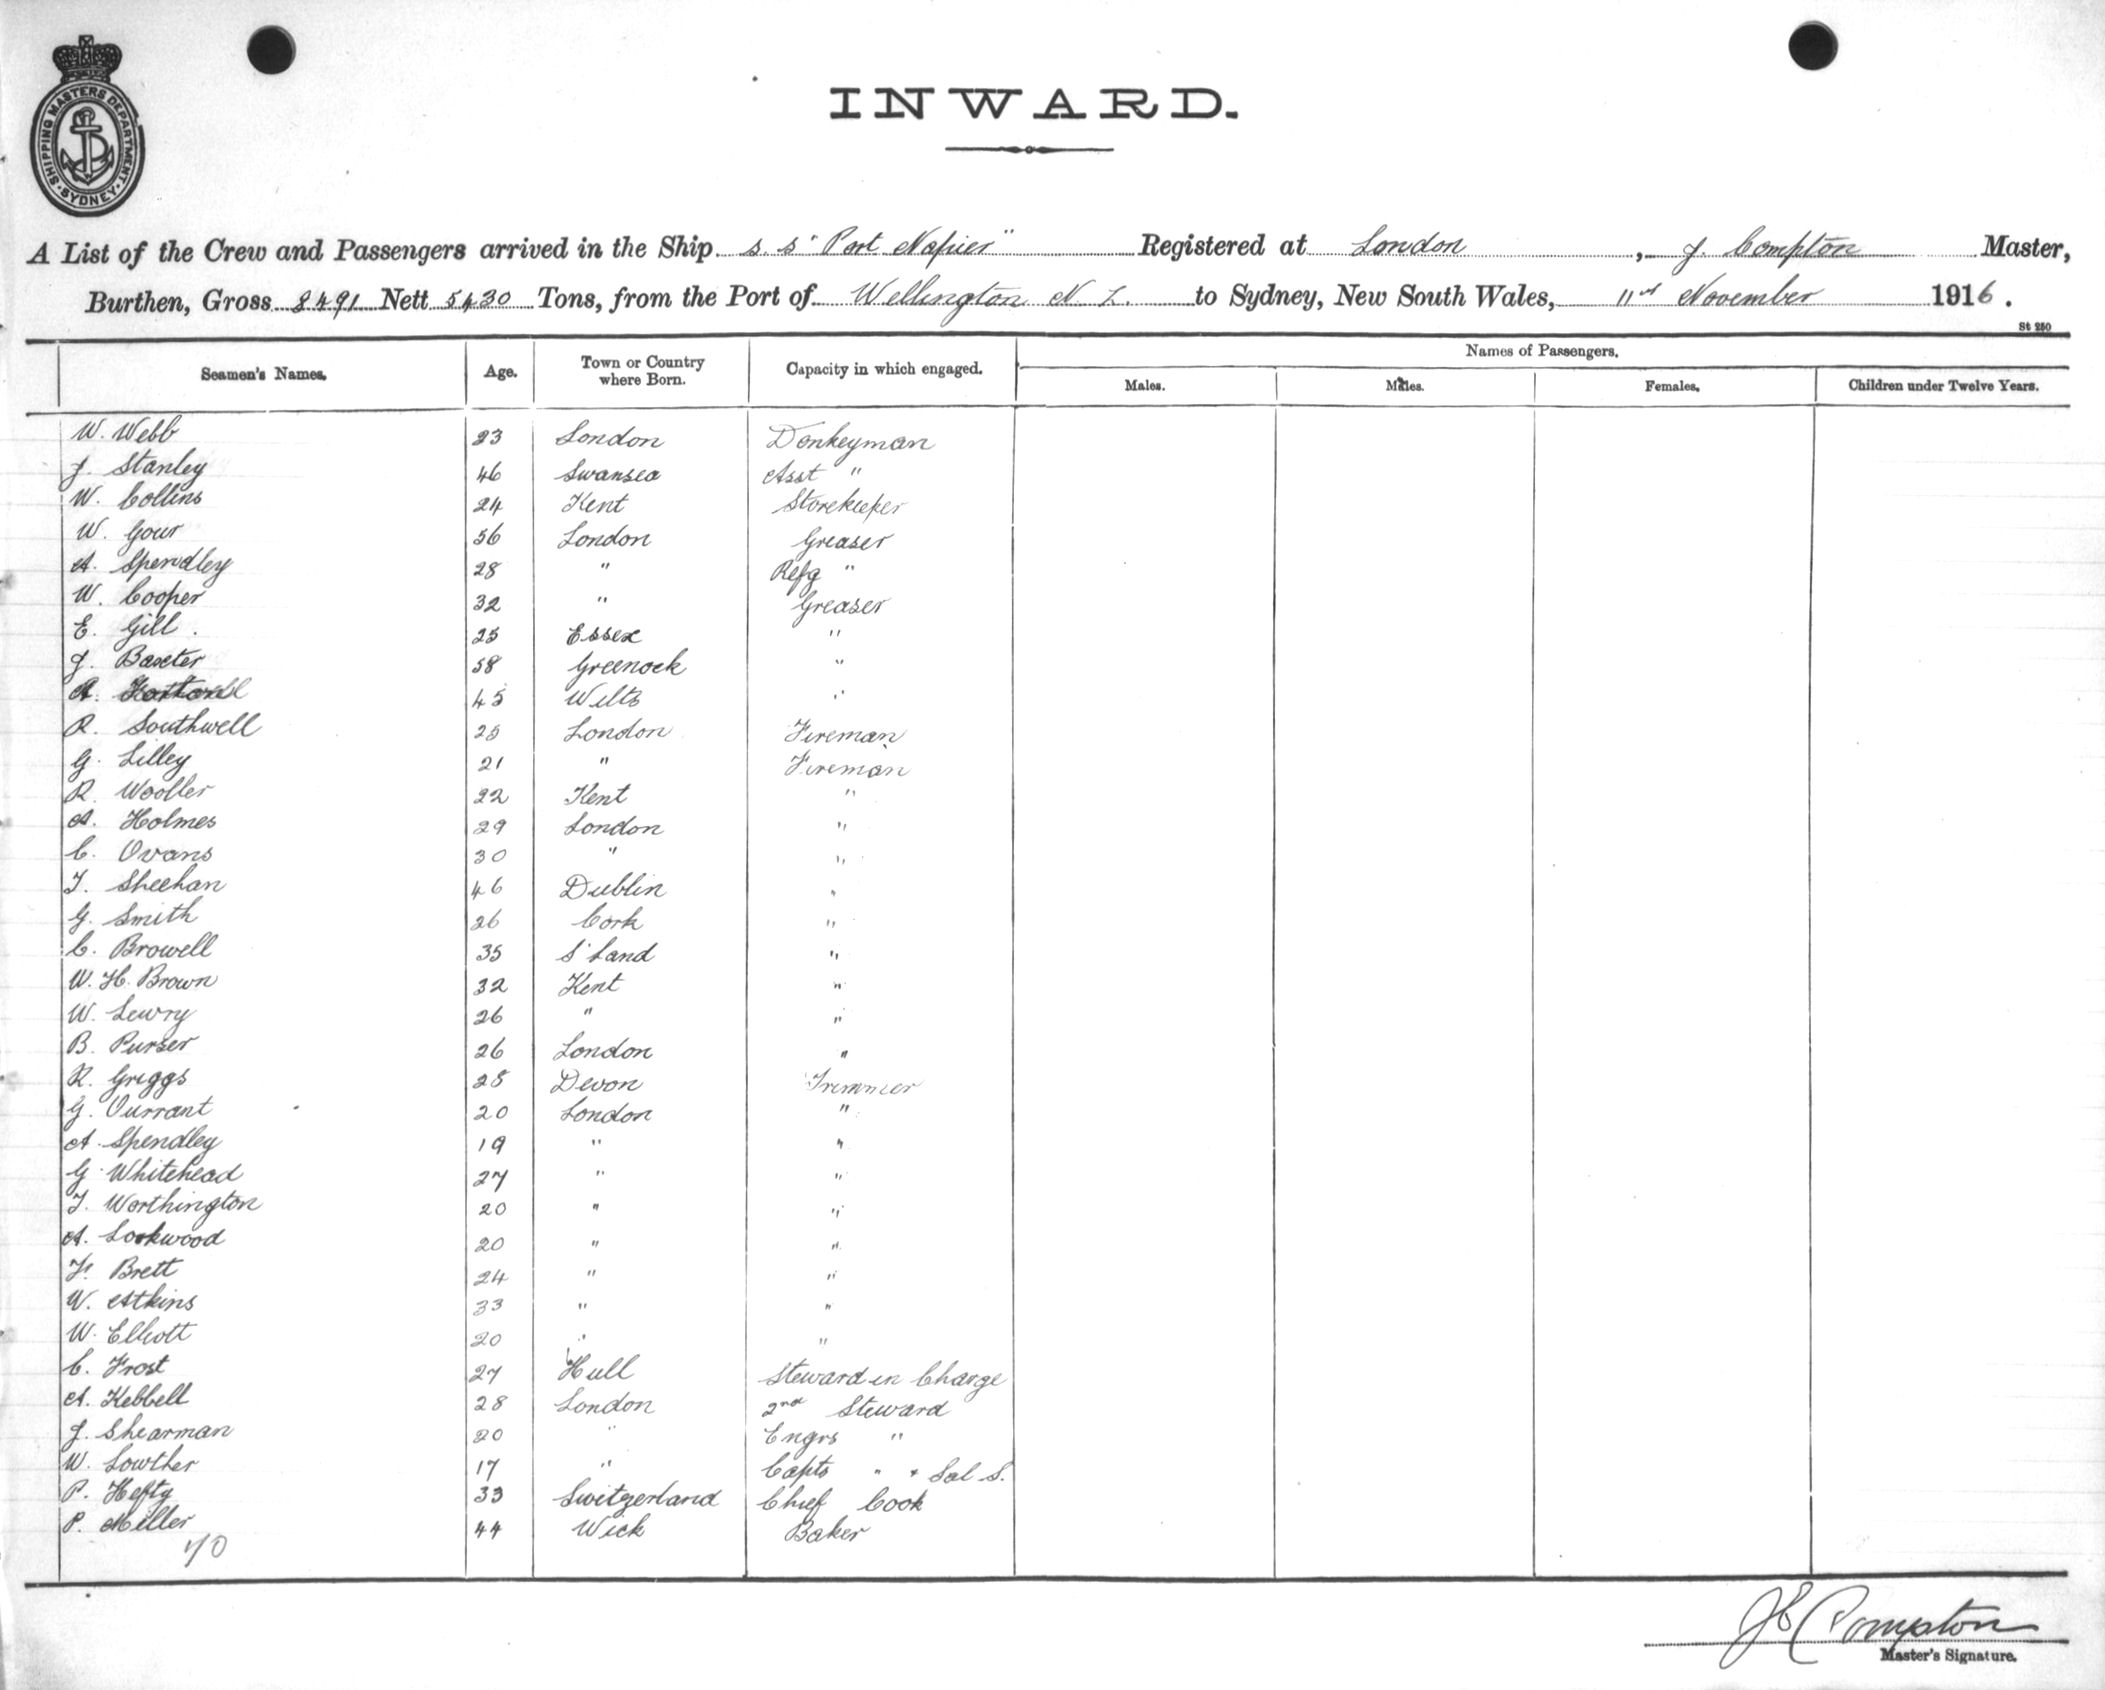 SHIPPING MASTERS DEPARTMENT · SYDNEY ·
INWARD.
A List of the Crew and Passengers arrived in the Ship S.S "Port Napier" Registered at London, J. Compton Master,
Burthen, Gross 8491 Nett 5430 Tons, from the Port of Wellington N.Z. to Sydney, New South Wales, 11th November 1916.
St 250
Seamen's Names. Age. Town or Country where Born. Capacity in which engaged. Names of Passengers.
Males. Males. Females. Children under Twelve Years.
W. Webb 23 London Donkeyman
J. Stanley 46 Swansea Asst "
W. Collins 24 Kent Storekeeper
W. Gour 56 London Greaser
A. Spendley 28 " Refg "
W. Cooper 32 " Greaser
E. Gill. 25 Essex "
J. Baxter 58 Greenock "
A. 45 Wilts "
R. Southwell 25 London Fireman
G. Lilley 21 " Fireman
R. Wooller 22 Kent "
A. Holmes 29 London "
C. Ovans 30 " "
T. Sheehan 46 Dublin "
G. Smith 26 Cork "
C. Browell 35 S'land "
W. H. Brown 32 Kent "
W. Lewry 26 " "
B. Purser 26 London "
R. Griggs 28 Devon Trimmer
G. Currant 20 London "
A. Spendley 19 " "
G. Whitehead 27 " "
T. Worthington 20 " "
A. Lockwood 20 " "
F. Brett 24 " "
W. Atkins 33 " "
W. Elliott 20 " "
C. Frost 27 Hull Steward in Charge
A. Kebbell 28 London 2nd Steward
J. Shearman 20 " Engrs "
W. Lowther 17 " Capts " + Sal S.
P. Hefty 33 Switzerland Chief Cook
P. Miller 44 Wick Baker
70
J E Compton
Master's Signature.